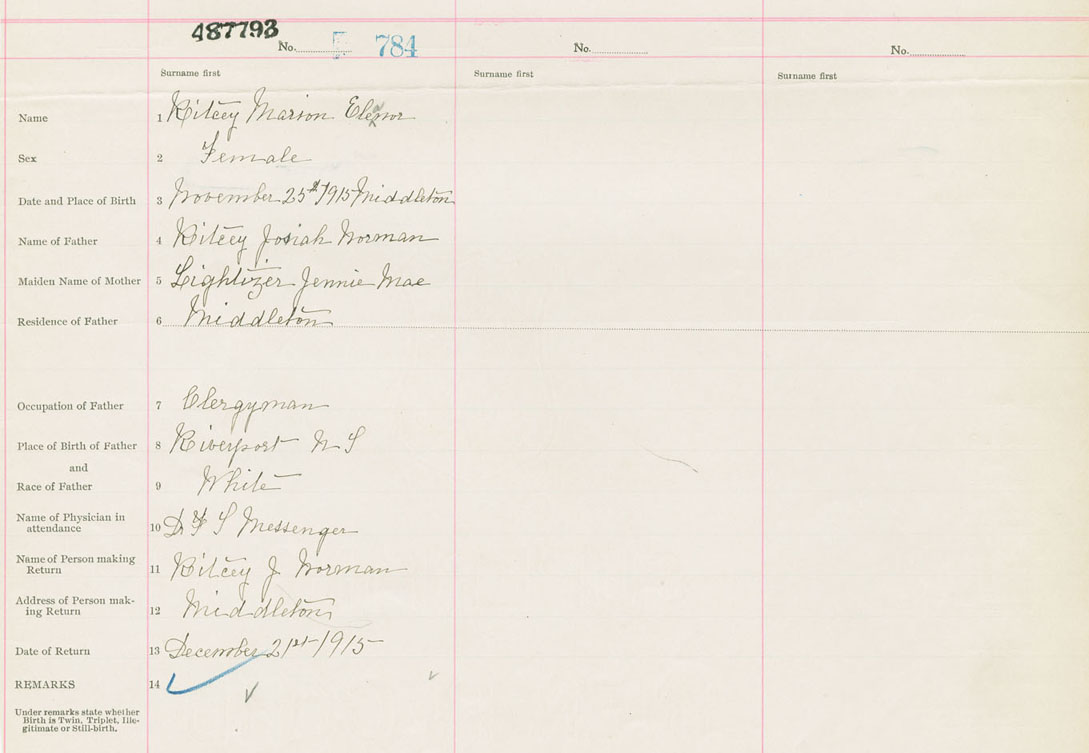 487793
No. 5 784 No. No.
Surname first Surname first Surname first
Name 1 Kitcey Marion Elenor
Sex 2 Female
Date and Place of Birth 3 November 25th 1915 Middleton
Name of Father 4 Kitcey Josiah Norman
Maiden Name of Mother 5 Lightizer Jennie Mae
Residence of Father 6 Middleton
Occupation of Father 7 Clergyman
Place of Birth of Father 8 Riverport N S
and
Race of Father 9 White
Name of Physician in
attendance 10 Dr F S Messenger
Name of Person making
Return 11 Kitcey J Norman
Address of Person mak-
ing Return 12 Middleton
Date of Return 13 December 21st 1915
REMARKS 14
Under remarks state whether
Birth is Twin, Triplet, Ille-
gitimate or Still-birth.